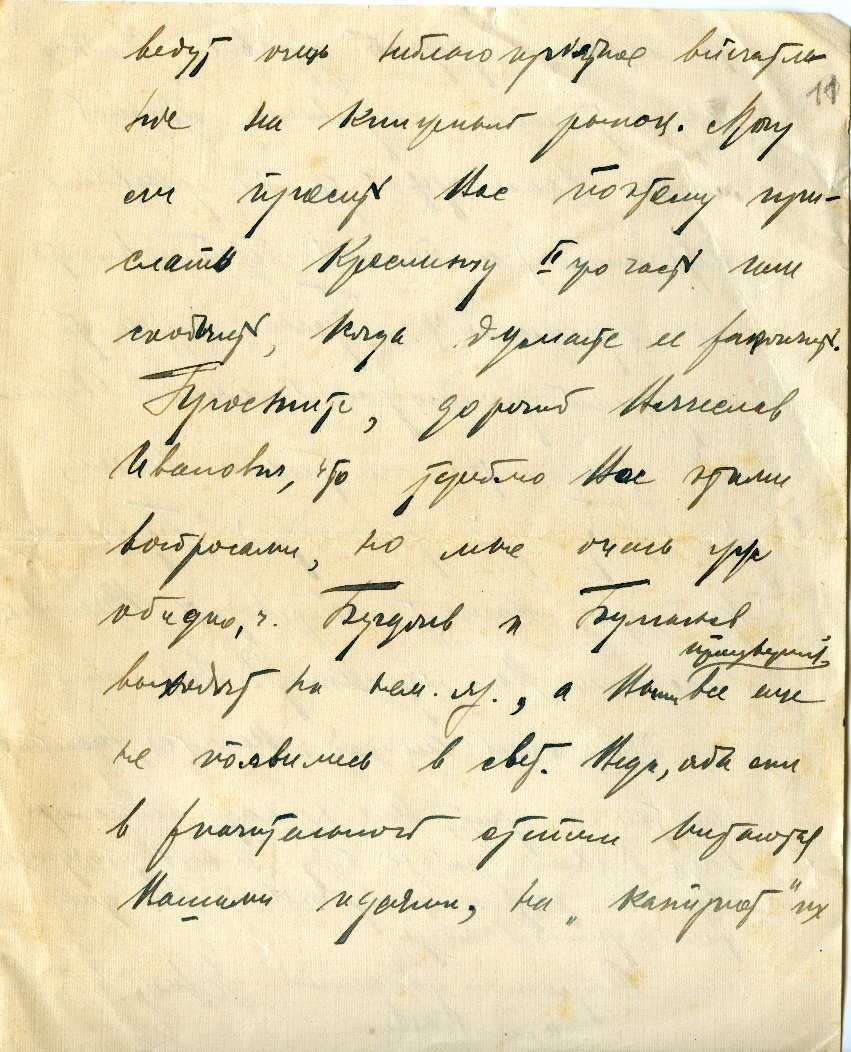 ведут очень неблагоприятное впечатле-
ние на книжный рынок. Могу
ли просить Вас поэтому при-
слать Креслингу II-ую часть или
сообщить, когда думаете ее закончить.
Простите, дорогой Вячеслав
Иванович, что тереблю Вас этими
вопросами, но мне очень уж
обидно, ч. Бердяев и Булгаков
выходят на нем. яз., а Ваши все еще
не появились в свет. Ведь, оба они
в значительной степени питаются
Вашими идеями, на „
11